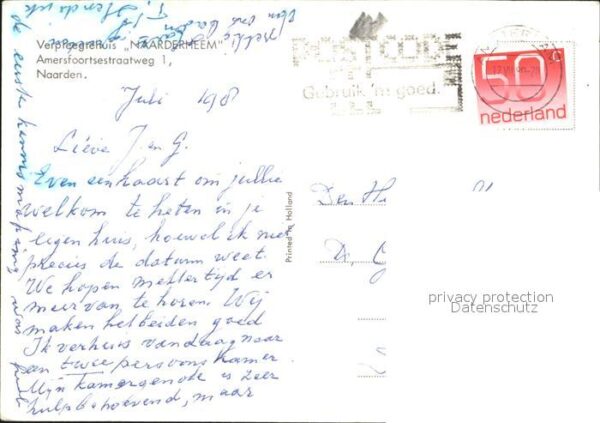 Verpleegtehuis „NAARDERHEEM"
Amersfoortsestraatweg 1,
Naarden.
POSTCODE
Gebruik 'm goed.
50 c
nederland
Juli 198
Lieve J. en G.
Even een kaart om jullie
welkom te heten in je
eigen huis, hoewel ik niet
precies de datum weet.
We hopen mettertijd er
meer van te horen. Wij
maken het beiden goed
Ik verhuis vandaag naar
een twee persoons kamer
Mijn kamergenote is zeer
hulpbehoevend, maar
de eerste kennismaking was
Printed in Holland
Den H
privacy protection
Datenschutz